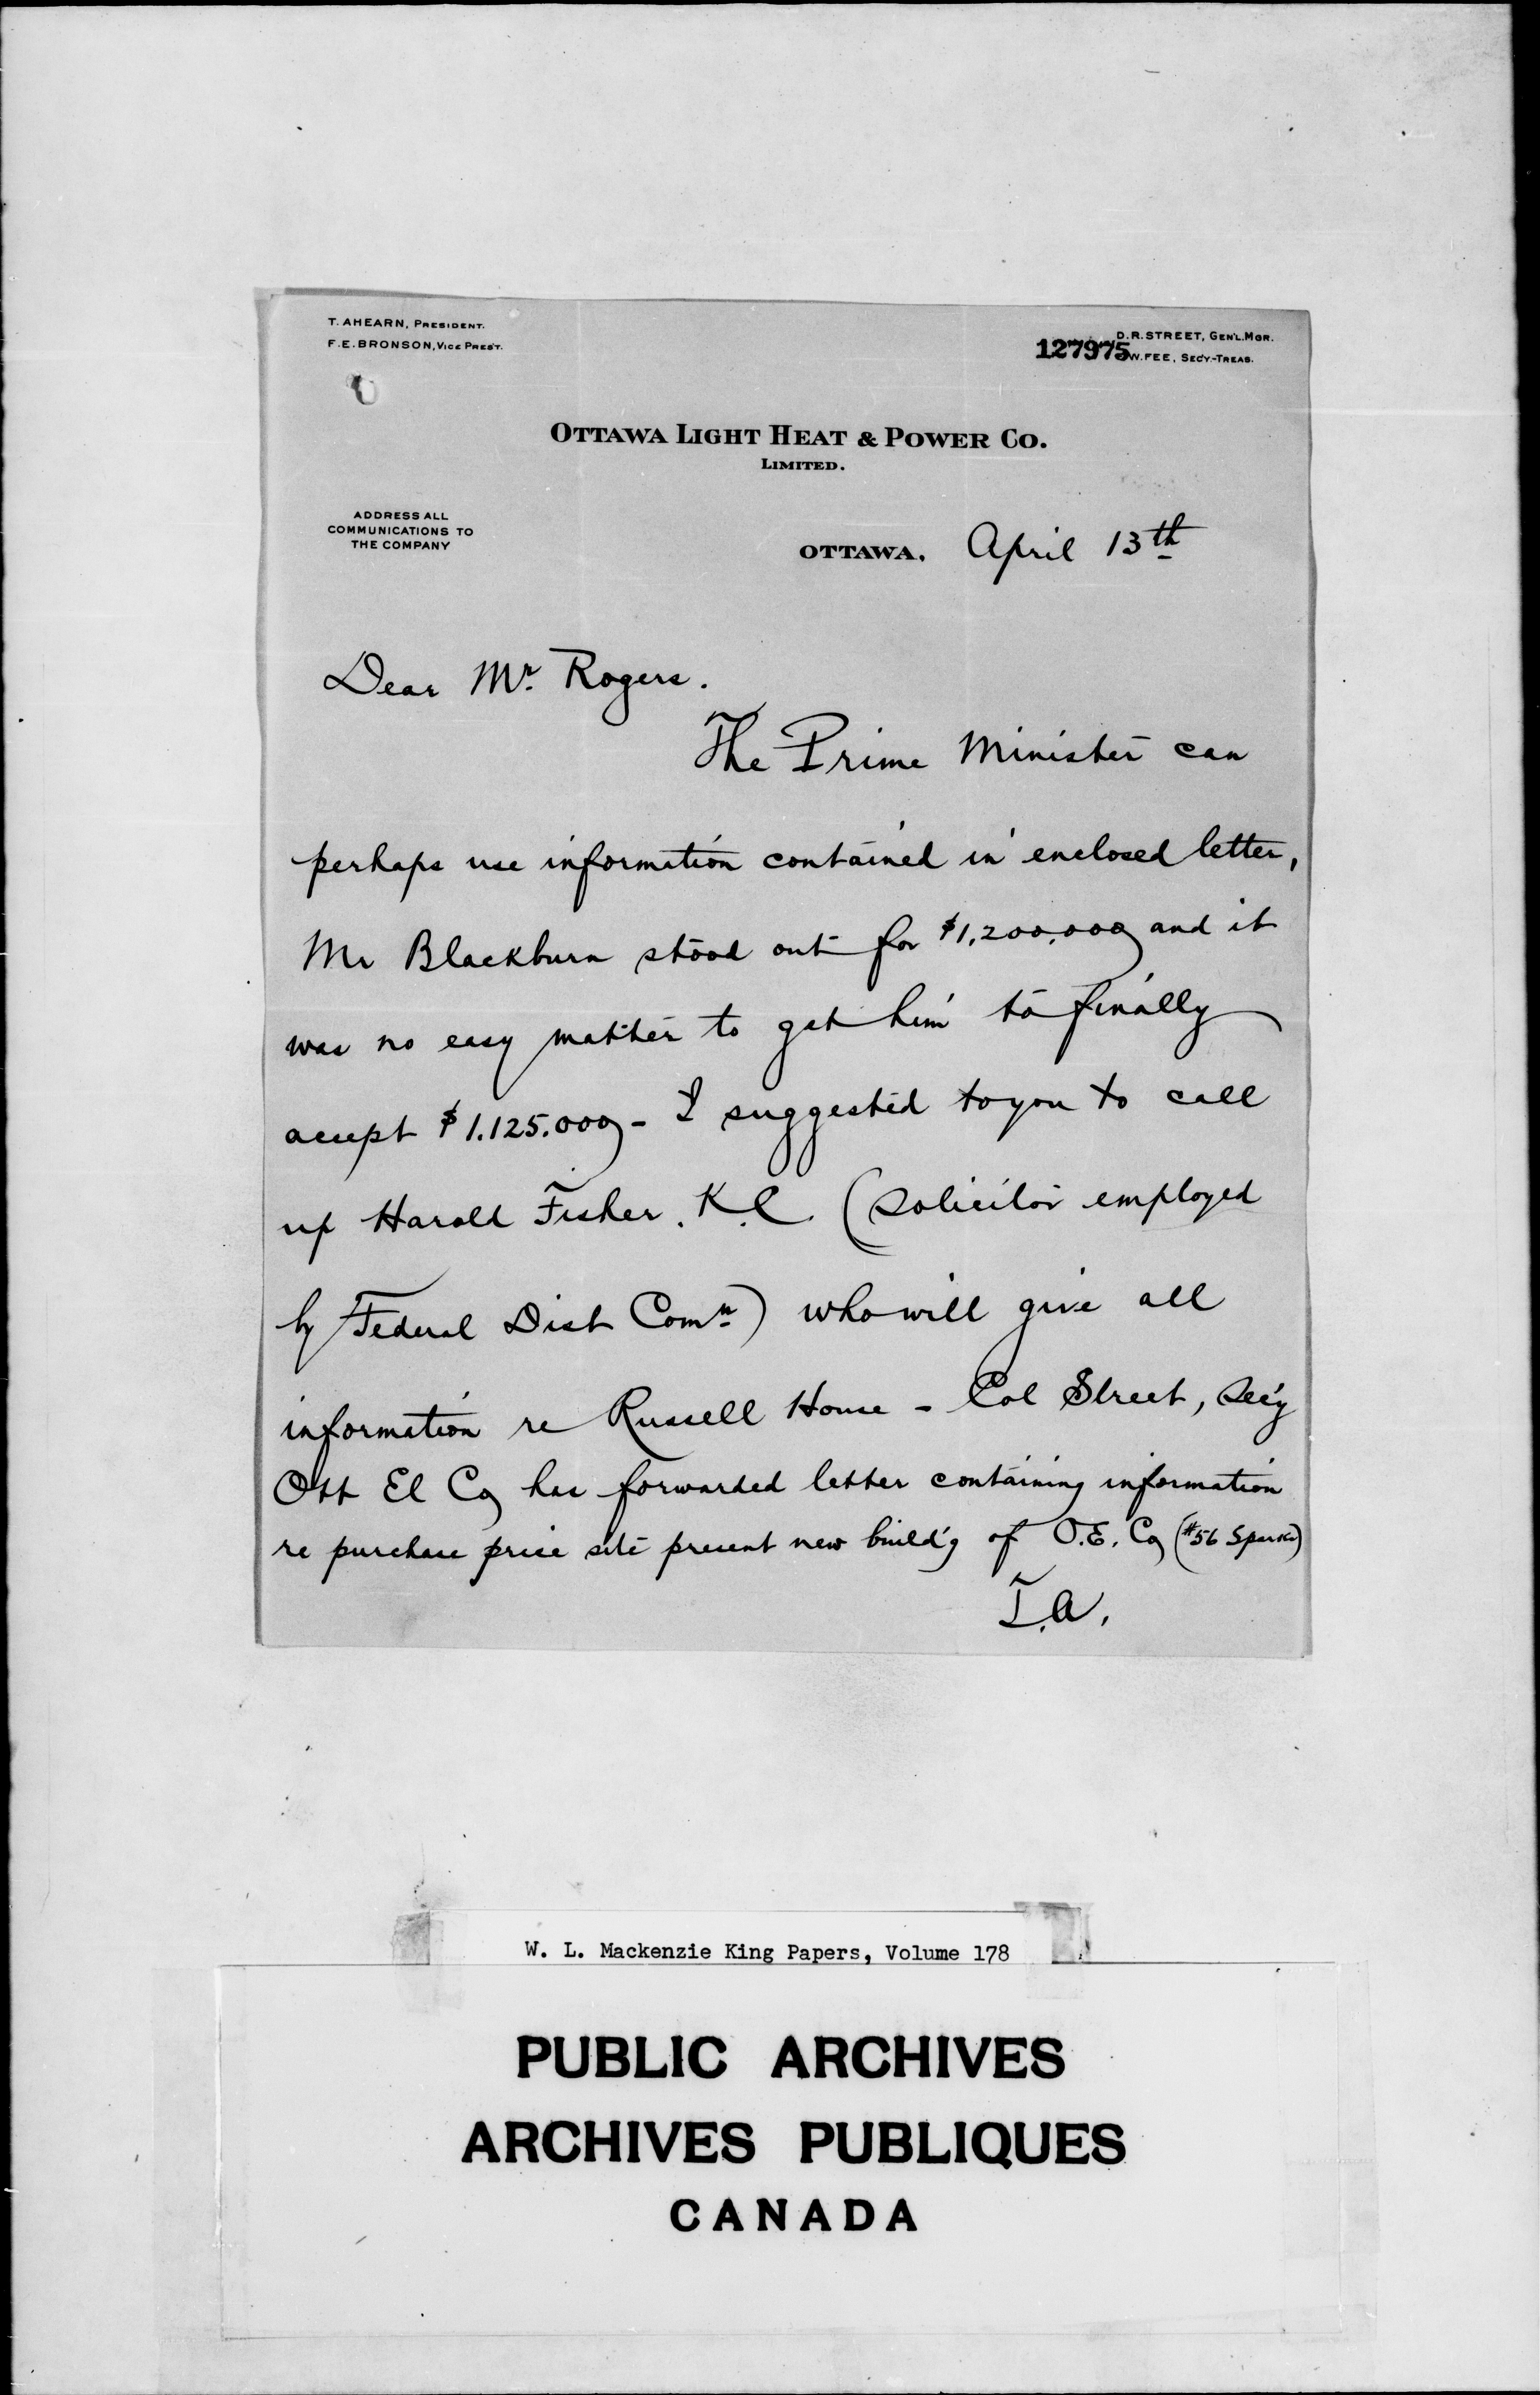 T. AHEARN, PRESIDENT.
F.E. BRONSON, VICE PRES'T.
D.R. STREET, GEN'L. MGR.
127975
W. FEE, SEC'Y-TREAS.
OTTAWA LIGHT HEAT & POWER CO.
LIMITED.
ADDRESS ALL
COMMUNICATIONS TO
THE COMPANY
OTTAWA. April 13th
Dear Mr. Rogers.
The Prime Minister can
perhaps use information contained in enclosed letter,
Mr Blackburn stood out for $1,200,000 and it
was no easy matter to get him to finally
accept $1.125.000 - I suggested to you to call
up Harold Fisher. K.C. (Solicitor employed
by Federal Dist Comn) who will give all
information re Russell House - Col Street, Sec'y
Ott El Co has forwarded letter containing information
re purchase price site present new build'g of O.E. Co (#56 Sparks)
T.A.
W. L. Mackenzie King Papers, Volume 178
PUBLIC ARCHIVES
ARCHIVES PUBLIQUES
CANADA